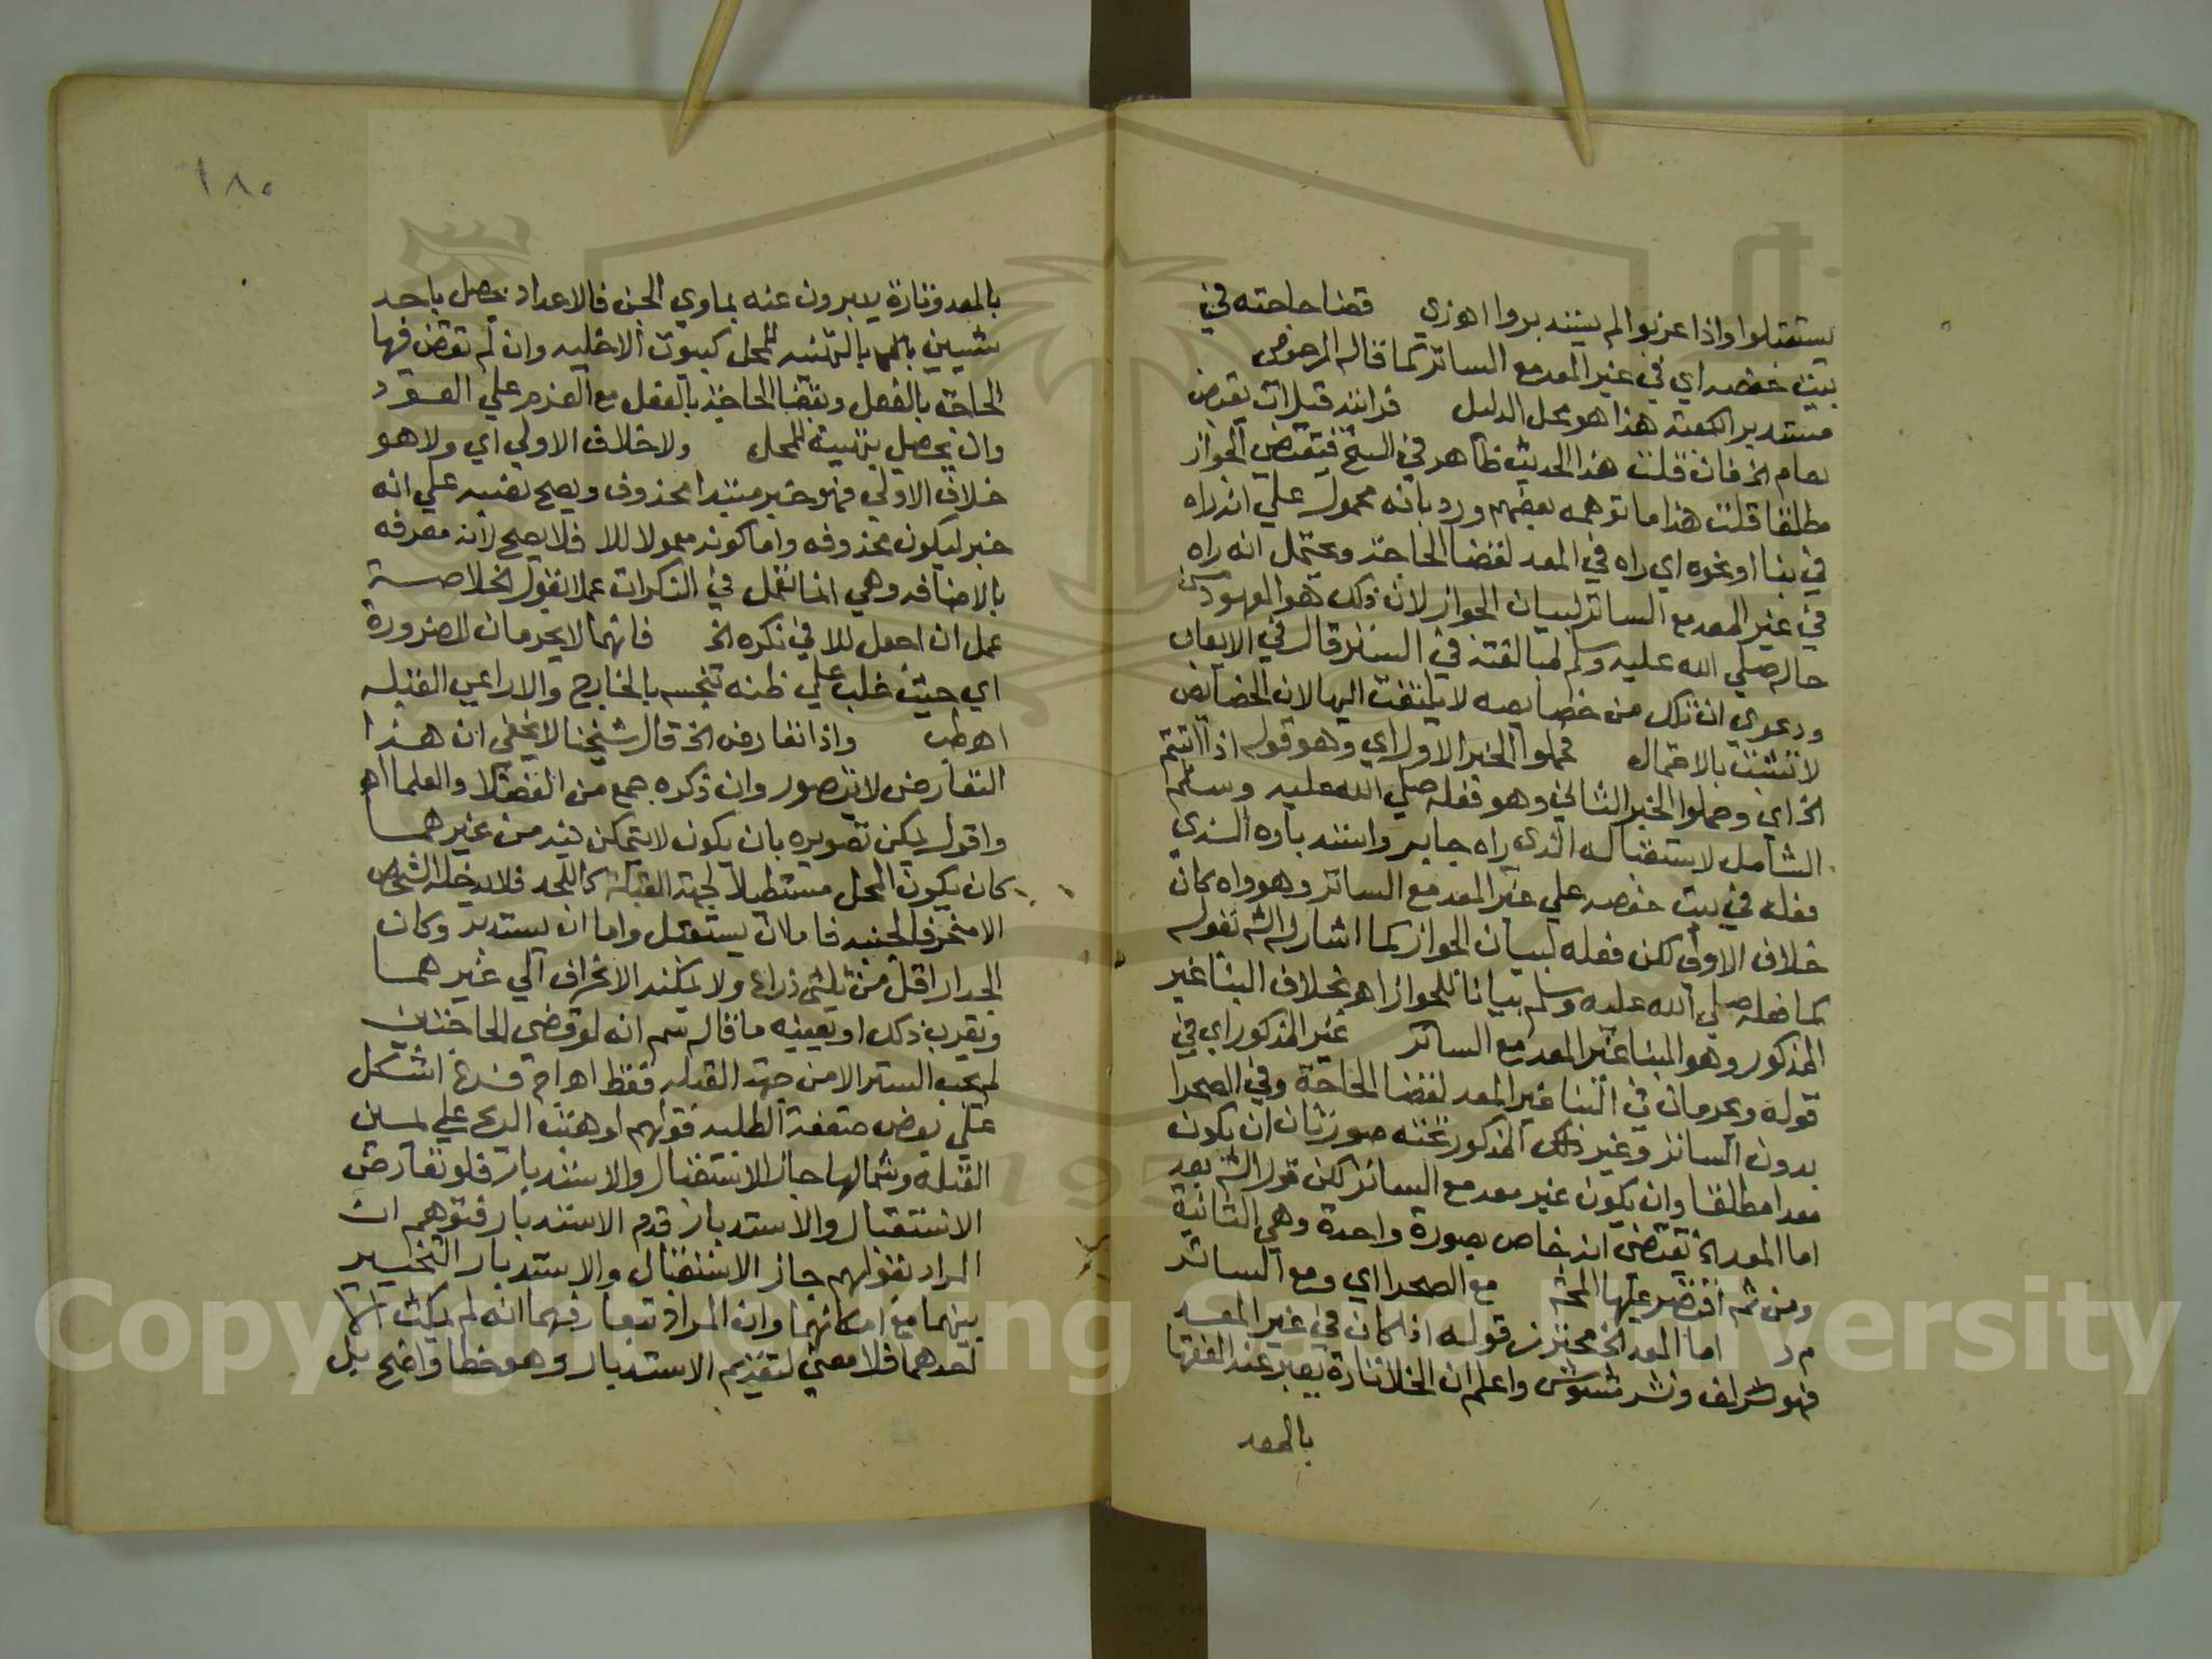 يستقبلوا واذا عزبوا لم يستدبروا اهوزي قضا حاجته في
بيت حفصه اي في غير المعد مع الساتر كما قاله المرحومي
مستدبر الكعبة هذا هو محل الدليل فرايته قبل ان يقبض
بعام الخ فان قلت هذا الحديث ظاهر في النسخ فيقتضي الجواز
مطلقا قلت هذا ما توهمه بعضهم ورد بانه محمول علي انه راه
في بنا او نحوه اي راه في المعد لقضا الحاجة ويحتمل انه راه
في غير المعد مع الساتر لبيان الجواز لان ذلك هو المعهود من
حاله صلي الله عليه وسلم لمبالغته في الستر قال في الايعاب
ودعوي ان ذلك من خصايصه لا يلتفت اليها لان الخصايص
لا تثبت بالاحتمال فحملوا الخبر الاول اي وهو قوله اذا اتيتم
الخ اي وحملوا الخبر الثاني وهو فعله صلي الله عليه وسلم
الشامل لاستقباله الذي راه جابر واستدباره الذي
فعله في بيت حفصه علي غير المعد مع الساتر وهو وان كان
خلاف الاولي لكن فعله لبيان الجواز كما اشار له الش بقوله
كما فعله صلي الله عليه وسلم بيانا للجواز اهو بخلاف البنا غير
المذكور وهو البنا غير المعد مع الساتر غير المذكور اي في
قوله ويحرمان في البنا غير المعد لقضا الحاجة وفي الصحرا
بدون الساتر وغير ذلك المذكور تحته صورتان ان يكون
معدا مطلقا وان يكون غير معد مع الساتر لكن قول الش بعد
اما المعد الخ يقتضي انه خاص بصورة واحدة وهي الثانية
ومن ثم اقتصر عليها المحشي مع الصحرا اي ومع الساتر
م د اما المعد الخ محترز قوله اذا كان في غير المعد
فهو لف ونشر مشوش واعلم ان الخلا تارة يعبر عنه الفقها
بالمعد
١٨٥
بالمعد وتارة يعبرون عنه بماوي الجن فالاعداد يحصل باحد
شيين بالتهيئه للمحل كبيوت الاخليه وان لم تقض فيها
الحاجة بالفعل وبقضا الحاجة بالفعل مع العزم علي العود
وان يحصل بتهيئة المحل ولا خلاف الاولي اي ولا هو
خلاف الاولي فهو خبر مبتدا محذوف ويصح نصبه علي انه
خبر ليكون محذوفه واما كونه معمولا للا فلا يصح لانه معرفه
بالاضافه وهي انما تعمل في النكرات عملا بقول الخلاصة
عمل ان اجعل للا في نكره الخ فانهما لا يحرمان للضرورة
اي حيث غلب علي ظنه تنجسه بالخارج والا راعي القبله
اهو طب واذا تعارض الخ قال شيخنا لا يخفي ان هذا
التعارض لا يتصور وان ذكره جمع من الفضلا والعلما اهو
واقول يمكن تصويره بان يكون لا يتمكن فيه من غيرهما
كان يكون المحل مستطيلا لجهة القبلة كاللحد فلا يدخله الشخص
الا منحرفا لجنبه فاما ان يستقبل واما ان يستدبر وكان
الجدار اقل من ثلثي ذراع ولا يمكنه الانحراف الي غيرهما
ويقرب ذلك او يعينه ما قاله سم انه لو قضي الحاجتين
لم يجب الستر الا من جهة القبله فقط اهو اج فرع اشكل
علي بعض ضعفة الطلبه قولهم لو هبت الريح علي يمين
القبلة وشمالها جاز الاستقبال والاستدبار فلو تعارض
الاستقبال والاستدبار قدم الاستدبار فتوهم ان
المراد بقولهم جاز الاستقبال والاستدبار التخيير
بينهما مع امكانهما وان المراد بتعارضهما انه لم يمكن الا
احدهما فلا معني لتقديم الاستدبار وهو خطا واضح بل
Copyright © King Saud University
1957